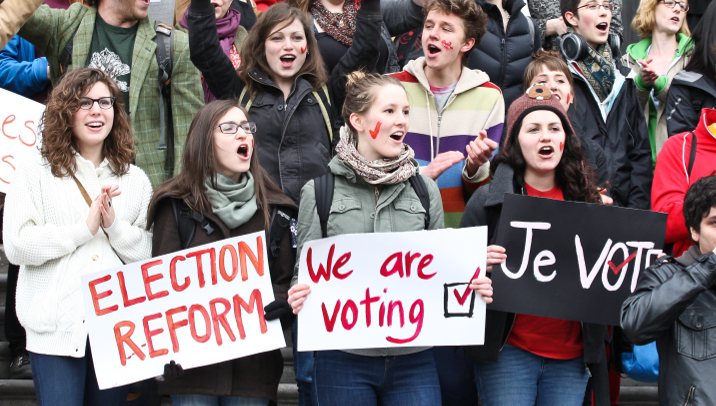 ELECTION
REFORM
We are
voting
Je VOTE